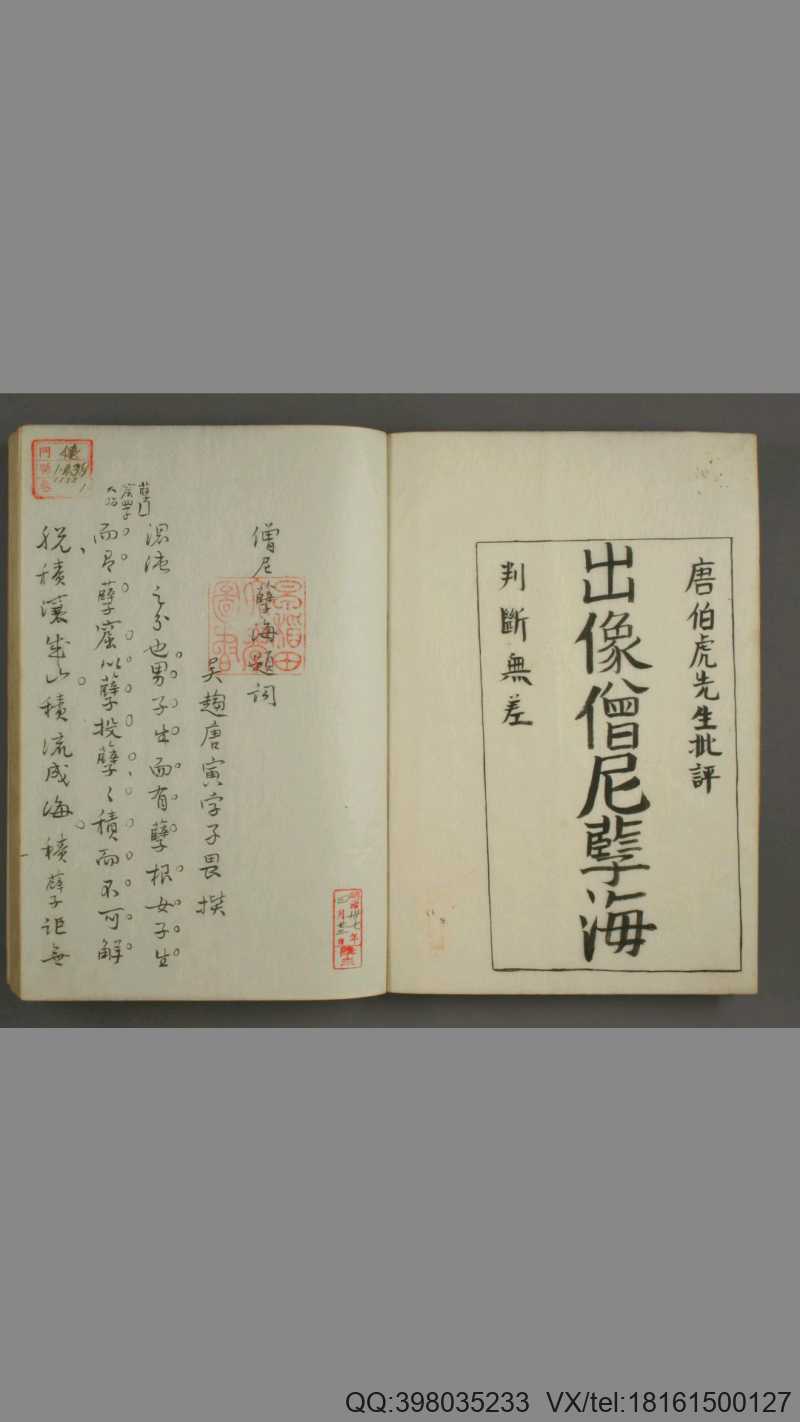 唐伯虎先生批評
出像僧尼孽海
判斷無差
僧尼孽海題詞
吴趨唐寅字子畏撰
混沌之分也男子生而有孽根女子生
而有孽窟以孽投孽々積而不可解
脱積壤成山積流成海積孽詎無
早稻田
圖書
門
號
卷
QQ:398035233 VX/tel:18161500127